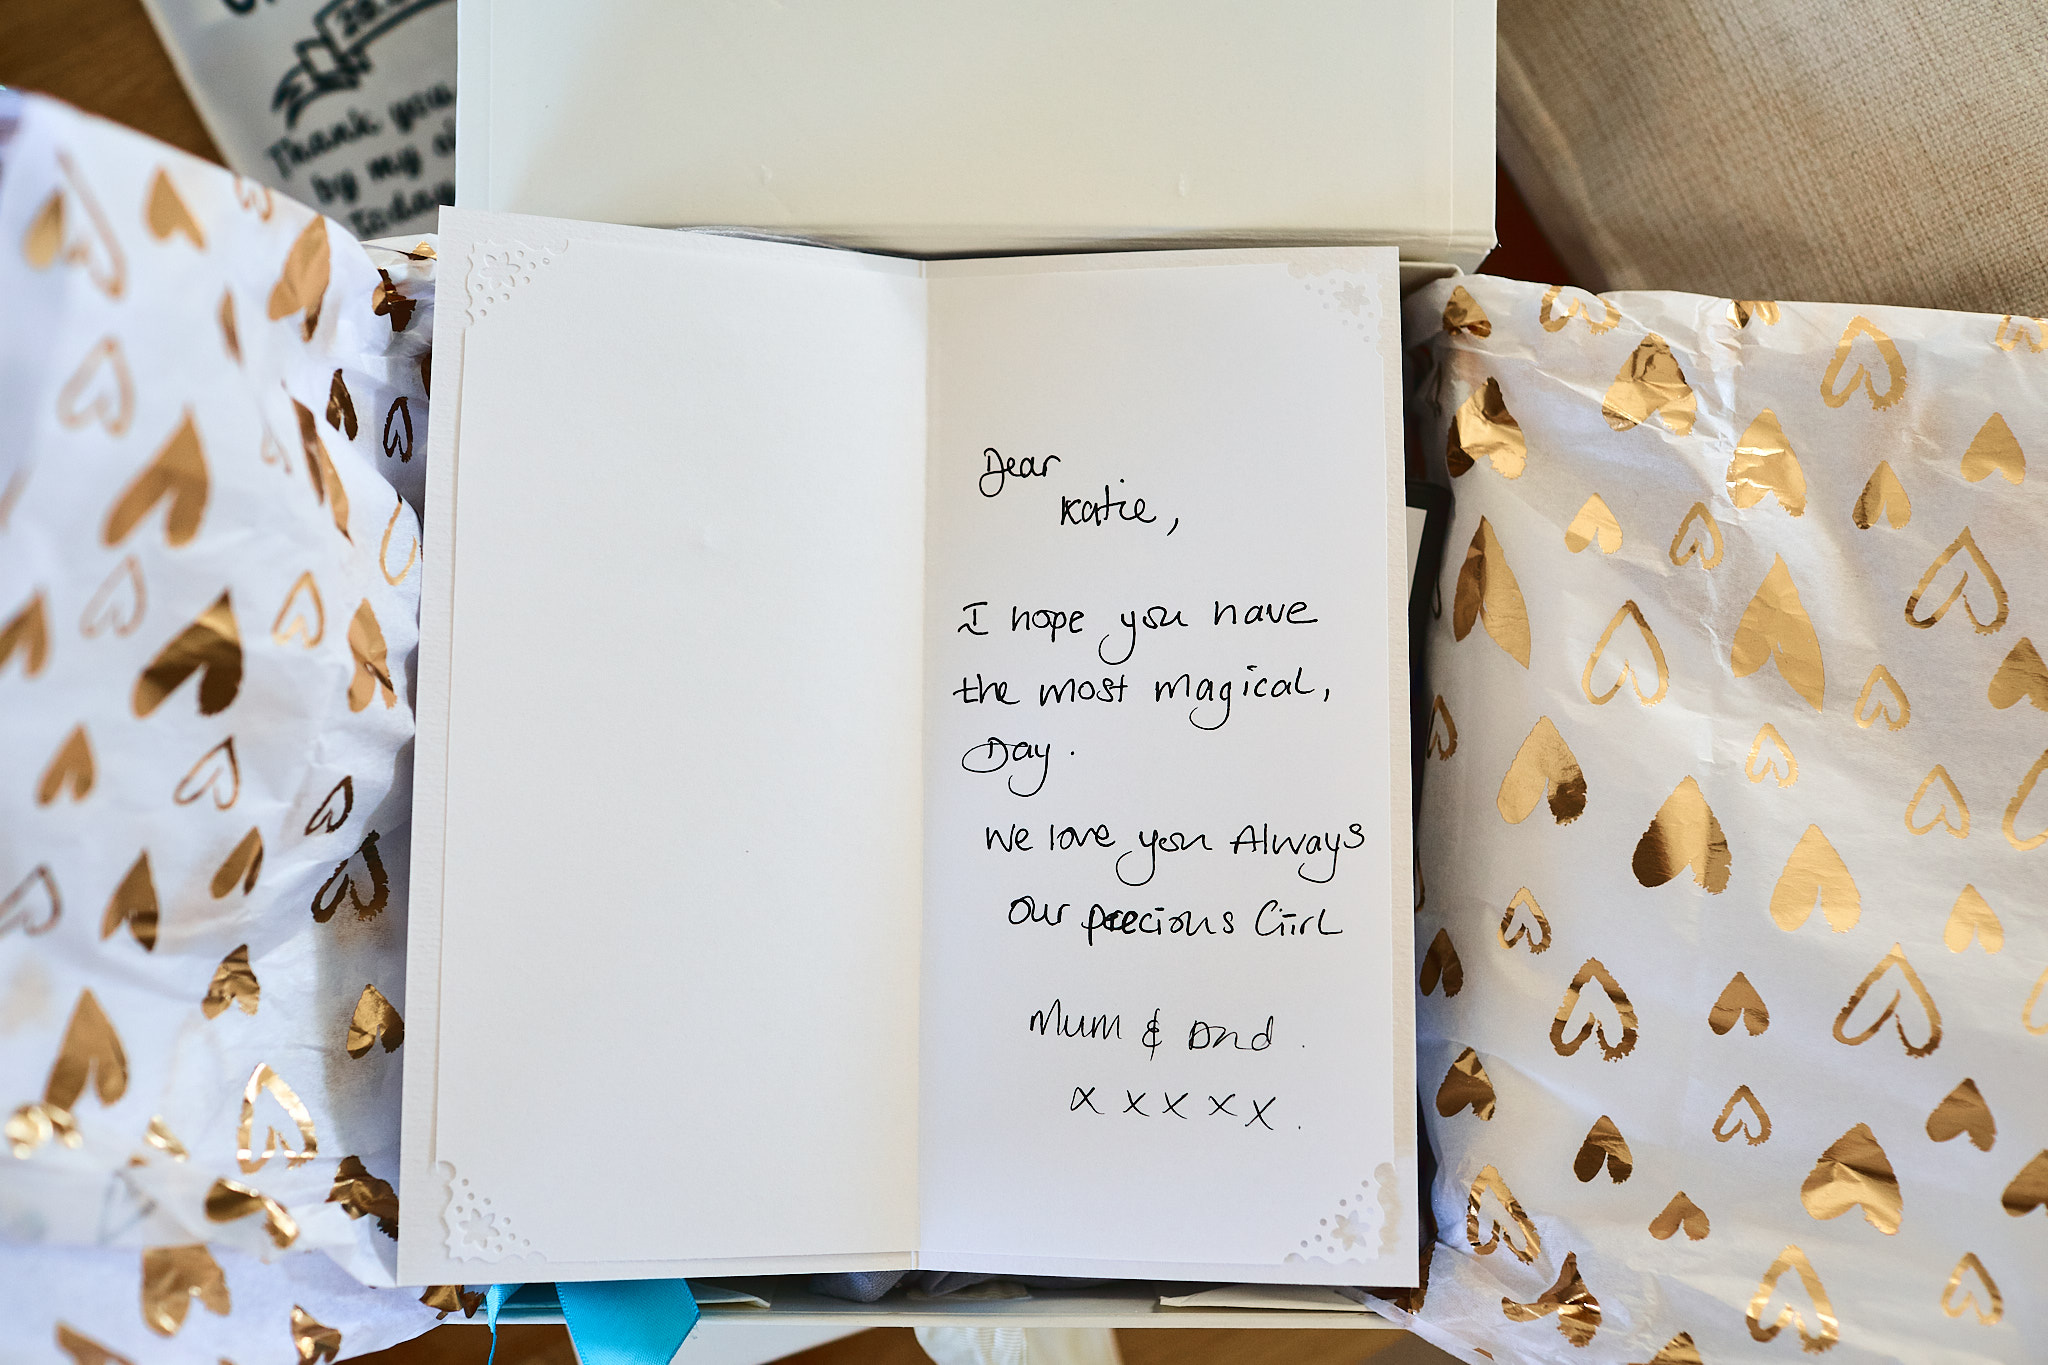 Thank you
by my
today
Dear
Katie,
I hope you have
the most magical,
Day.
We love you Always
Our precious Girl
Mum & Dad.
x x x x x.